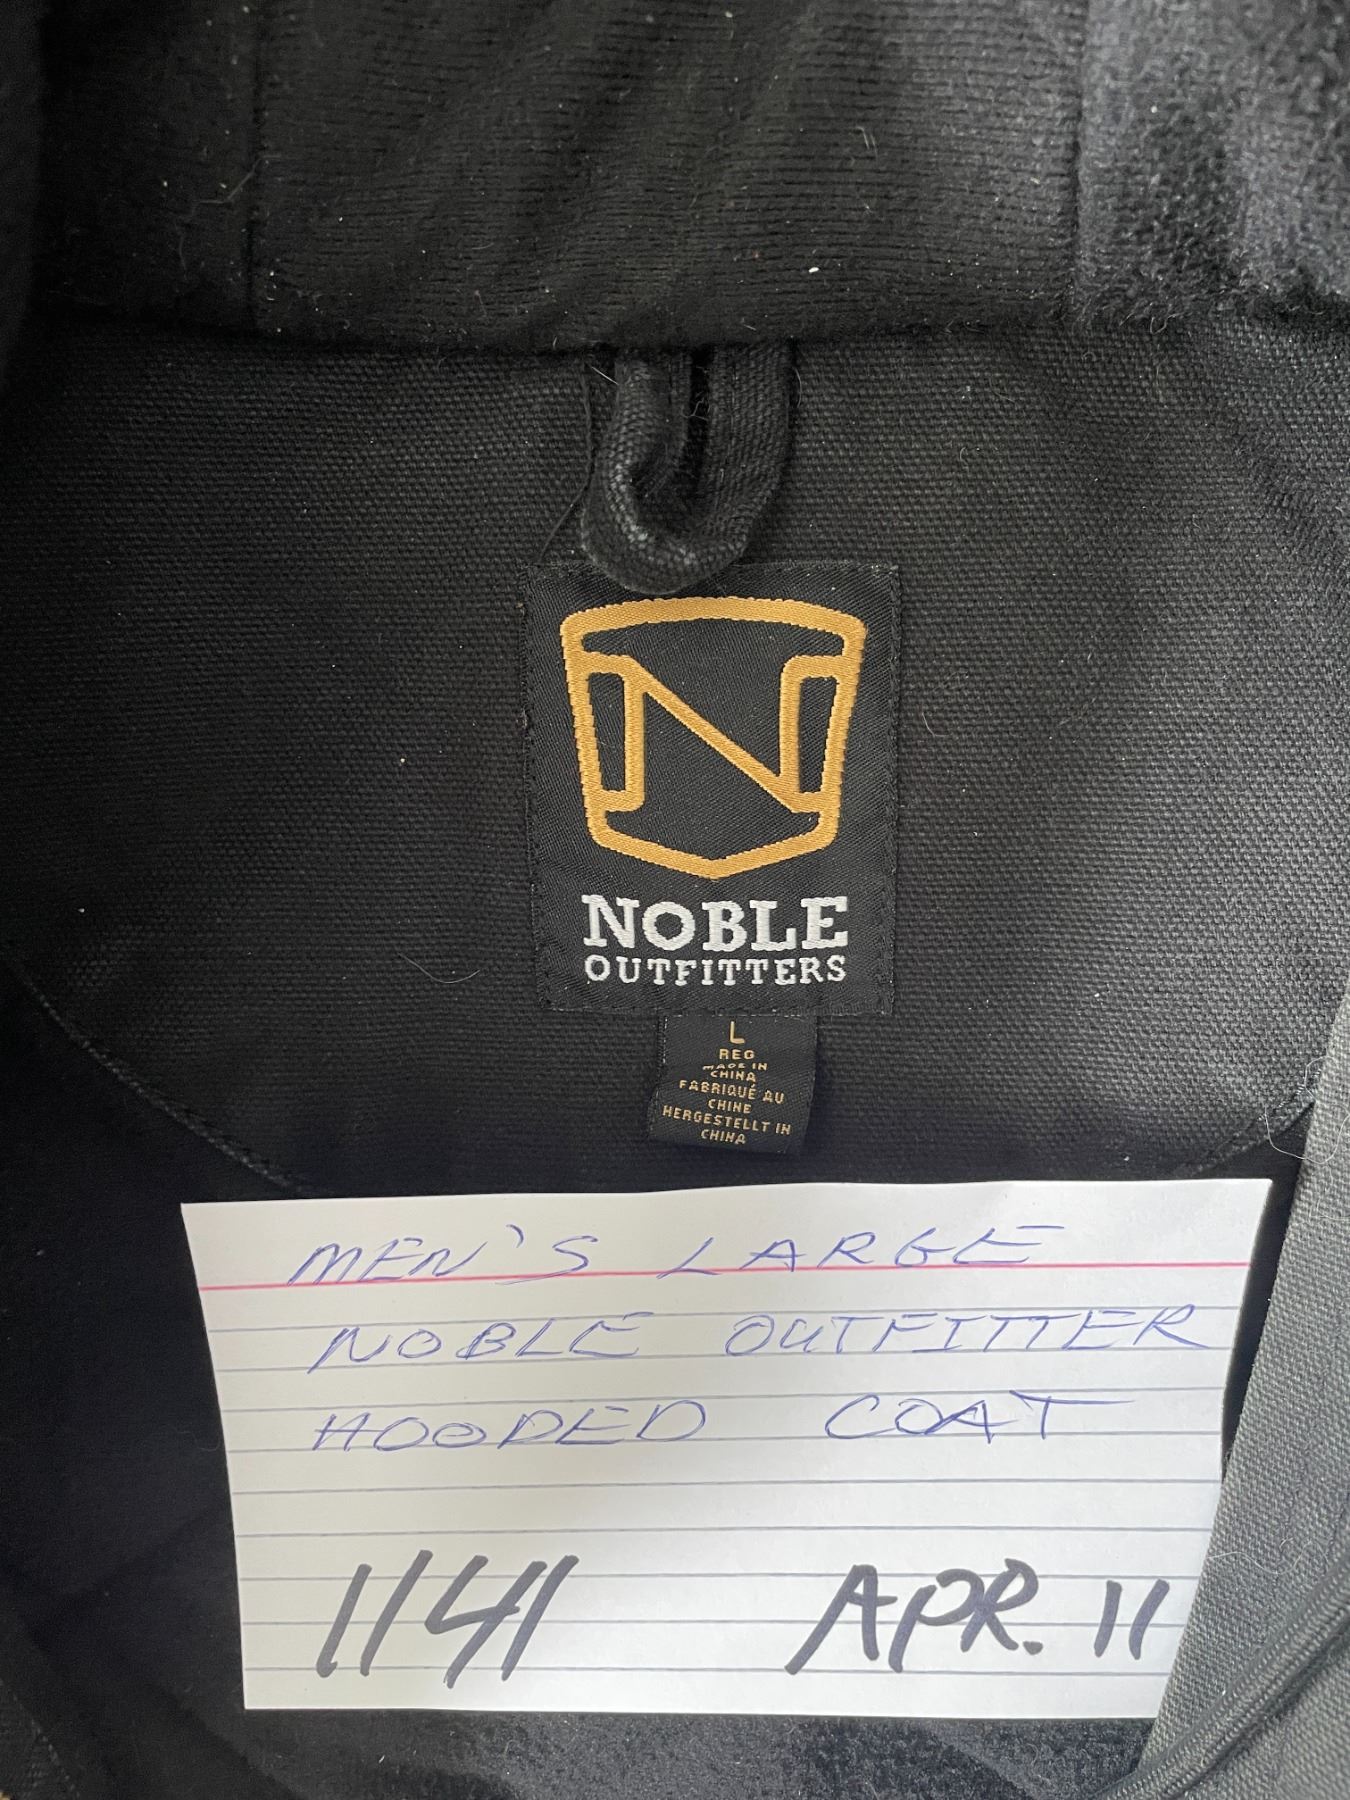 N
NOBLE
OUTFITTERS
L
REG
MADE IN
CHINA
FABRIQUÉ AU
CHINE
HERGESTELLT IN
CHINA
MEN'S LARGE
NOBLE OUTFITTER
HOODED COAT
1141 APR. 11